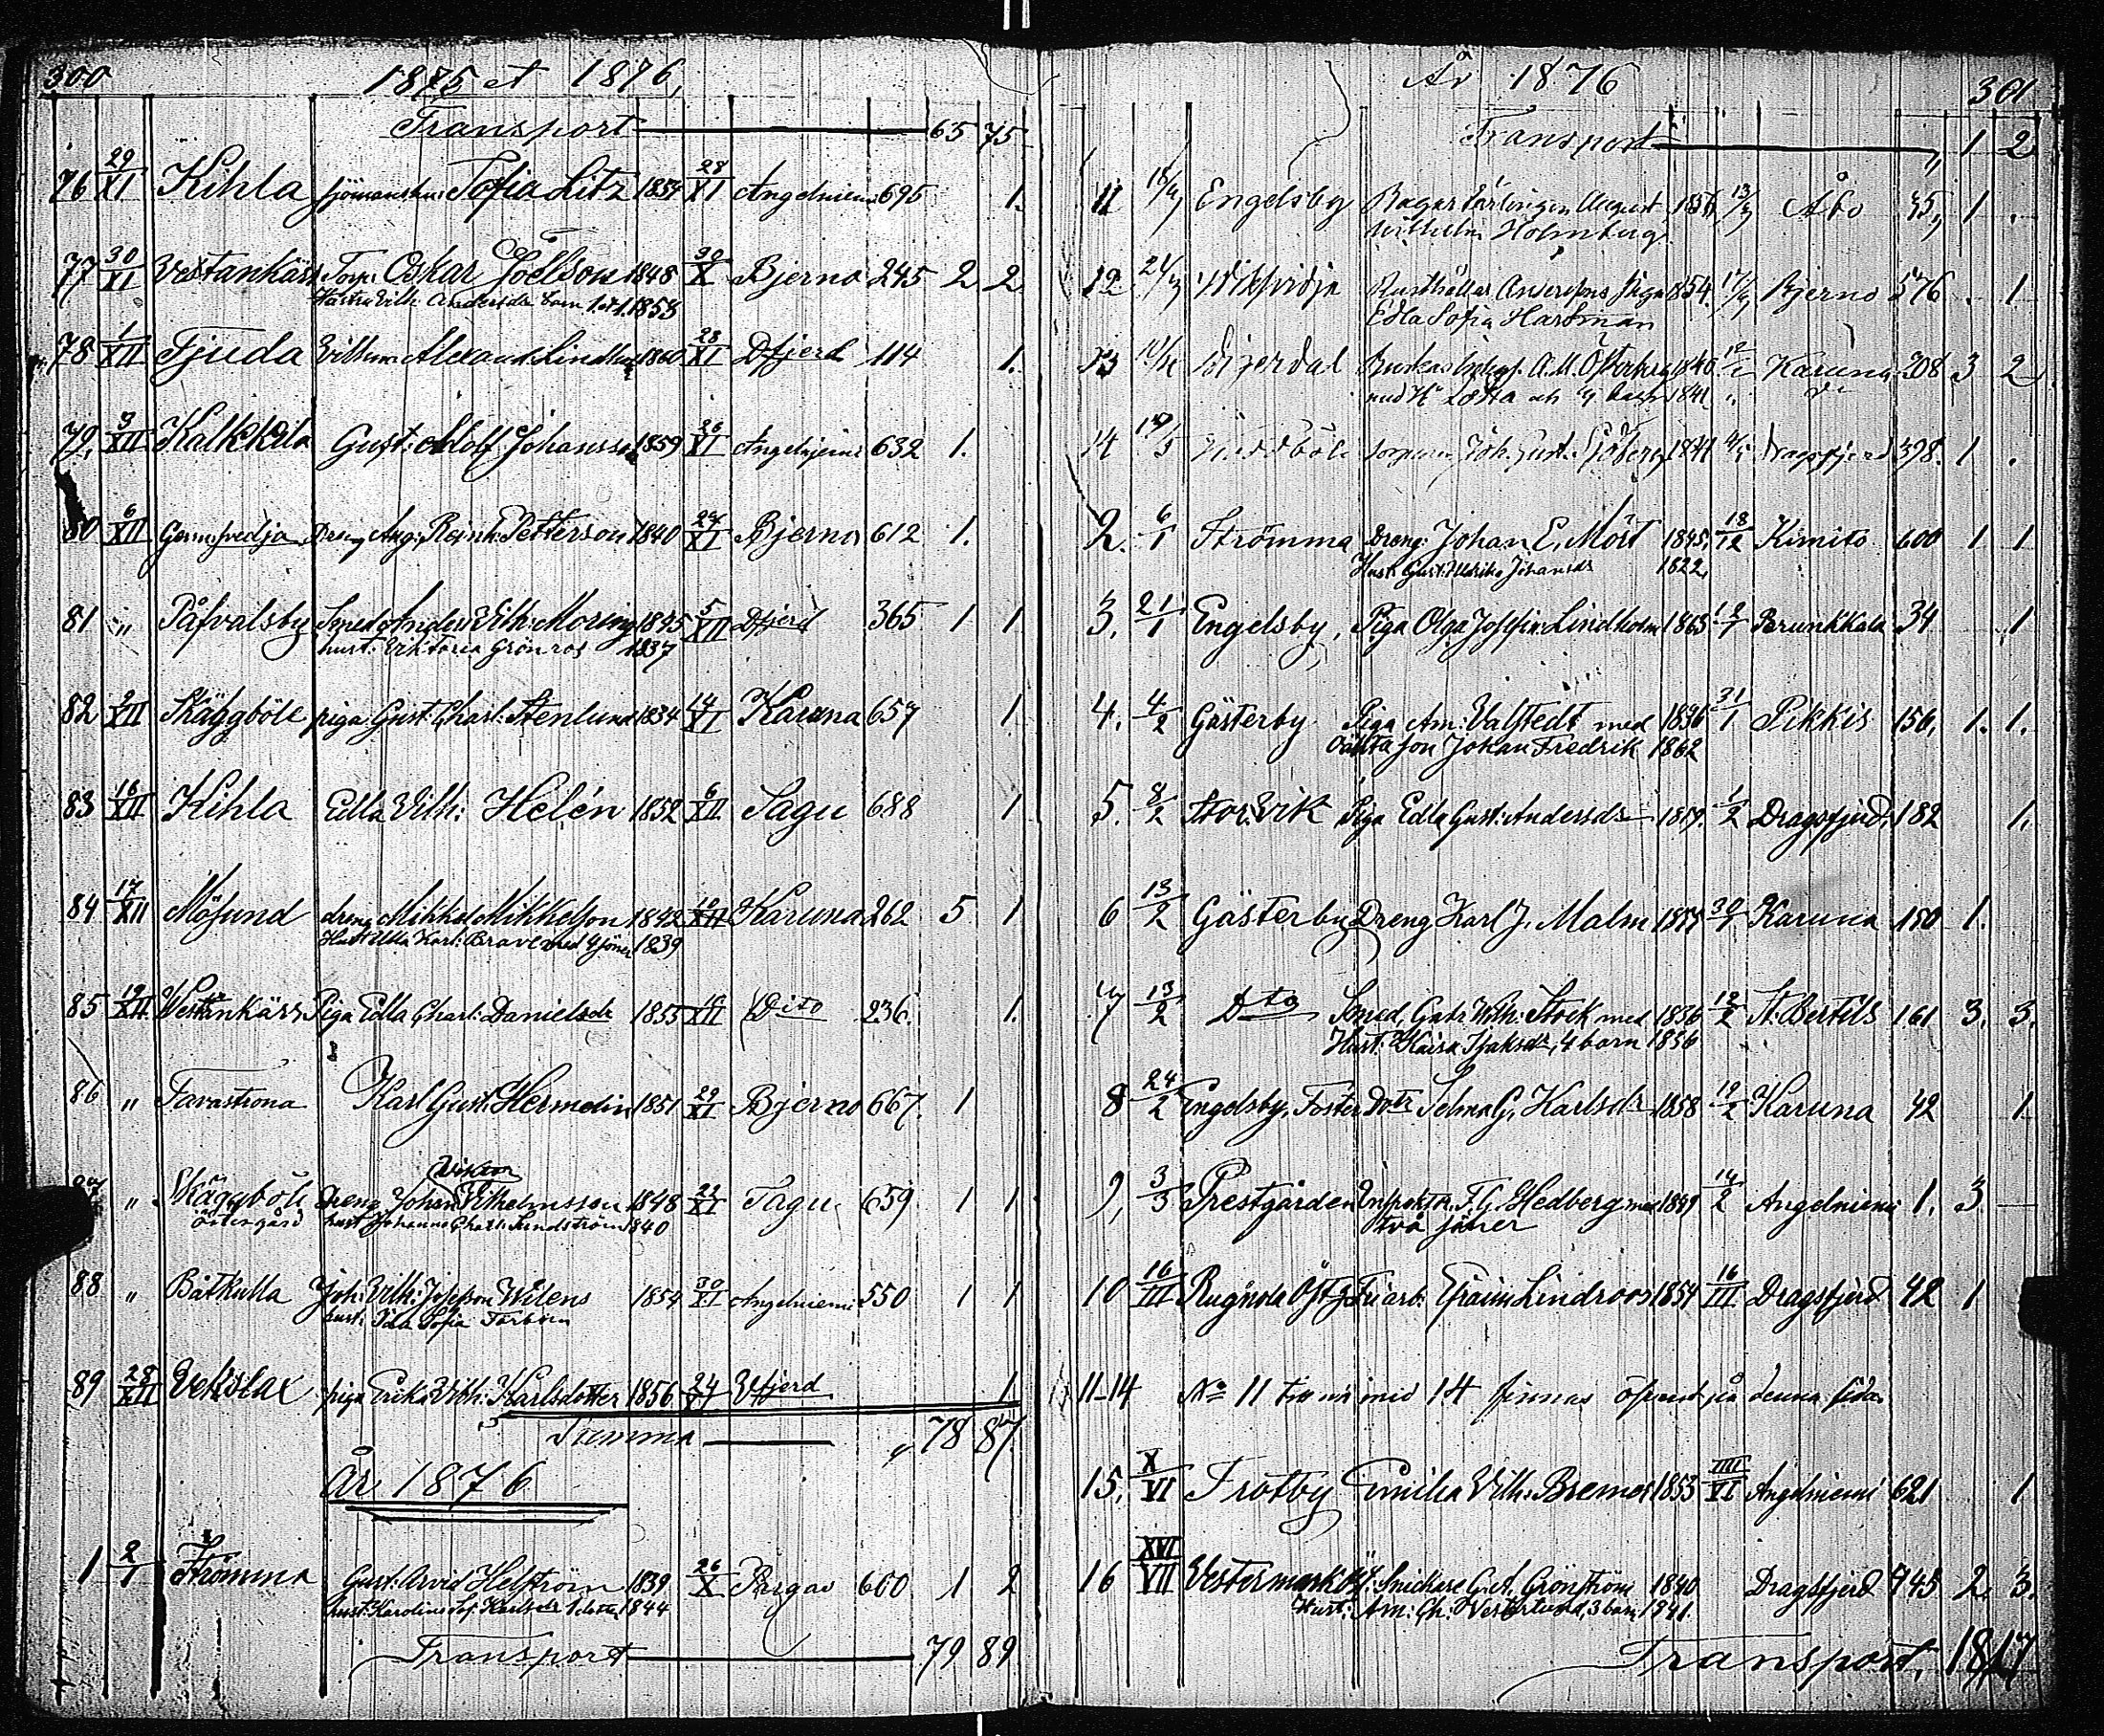 300 1875 et 1876,
Transport 65 75
76 29/XI Kihla sjömanshu: Sofia Litz 1854 28/XI Angelniemi 695 1.
77 30/XI Vestankärr Torp: Oskar Joelsson 1848 30/X Bjerno 245 2 2
Vilh: Andersdr barn 1853
78 1/XII Tjuda Vilhem Alexand: Lindho 1860 28/XI Dfjerd 114 1.
79, 3/XII Kalkkila Gust: Adolf Johansson 1859 26/XI Angelnjemi 632 1.
80 6/XII Germsvedja Dreng Aug: Reinh: Petterson 1840 24/XI Bjerno 612 1.
81 „ Påfvalsby Smed Anders Vilh: Moring 1835 5/XII Dfjerd 365 1 1
hust: Viktoria Grönros 1837
82 9/XII Skäggböle piga Gust: Charl: Stenlund 1834 14/XI Karuna 657 1.
83 16/XII Kihla Edla Vilh: Helén 1852 6/XII Sagu 688 1
84 17/XII Mösund dreng Mikkel Mikkelson 1842 10/XII Karuna 262 5 1
Hust Ulla Karl: Brave med 4 söner 1839
85 19/XII Westankärr Piga Edla Charl: Danielsdr 1855 16/XII Dito 236. 1.
86 „ Tavastrona Karl Gust: Hermelin 1851 29/XI Bjerno 667. 1
87 „ Skäggböle Dreng Johan Viktor Vilhelmsson 1848 22/XI Sagu 659 1 1
Östergård hust Johanna Charl: Sundström 1840
88 „ Båtkulla Joh: Vilh: Josepson Wilens 1854 30/XI Angelniemi 550 1 1
hust: Ida Sofia Forbom
89 28/XII Vekslax piga Erika Vilh: Karlsdotter 1856 24/ Dfjerd 1
Summa „ 78 87.
År 1876
1 2/1 Strömma Gust: Arvid Helström 1839 26/X Pargas 600 1 2
hust: Karolina Sof: Karlsdr 1 dotter 1844
Transport 79 89
År 1876 301
Transport „ 1 2
11 Engelsby Bagar Lärlingen August 1856 13/ Åbo 35, 1 .
Wilhelm Holmberg
12 Rusthållar piga 1854. 17/ Bjerno 576 . 1
Edla Sofia Hardman
13 Bjerdal A. M. Österberg 1840 12/ Karuna 308 3 2
med Hu Lotta och barn 1841 „
14 /5 Joh: Gust: Sjöberg 1841 4/5 Dragsfjerd 398. 1 .
2. 6/1 Strömma Dreng: Johan E. Mört 1845, 18/12 Kimito 600 1 1
Hust: Gust: Ulrika Johansdr 1822,
3. 21/1 Engelsby, Piga Olga Josefin: Lindholm 1863 12/1 Brunkkala 34 1
4. 4/2 Gästerby Piga Am: Valstedt med 1836 31/1 Pikkis 156, 1. 1.
oäkta son Johan Fredrik 1862
5. 8/2 Stor: Vik Piga Edla Gust: Andersdr 1859. 1/2 Dragsfjerd 182 1.
6 13/2 Gästerby Dreng Karl J. Malm 1855 30/1 Karuna 150 1.
7 13/2 Dto Smed Gabr: Wilh: Stock med 1836 12/2 St. Bertils 161 3. 3.
Hust: Kaisa Isaksdr, 4 barn 1836
8 24/2 Engelsby, Foster Dotr Selma G. Karlsdr 1858 19/2 Karuna 42 1
9, 3/3 Prestgården Inspektor, F. G. Hedberg med 1849 14/2 Angelniemi 1. 3 —
två söner
10 16/III Rugnola Öst: Efraim Lindroos 1854 16/III Dragsfjerd 42 1
11-14 No 11 till och med 14 finnas öfverst på denna sida
15. X/VI Trotby Emilia Vilh: Bremer 1853 IIII/VI Angelniemi 621 1
16 XVI/VII Vestermark Snickare G. A. Grönström 1840 Dragsfjerd 745 2. 3.
Hust: Am: Ch: Vesterlund, 3 barn 1841.
Transport, 18 17